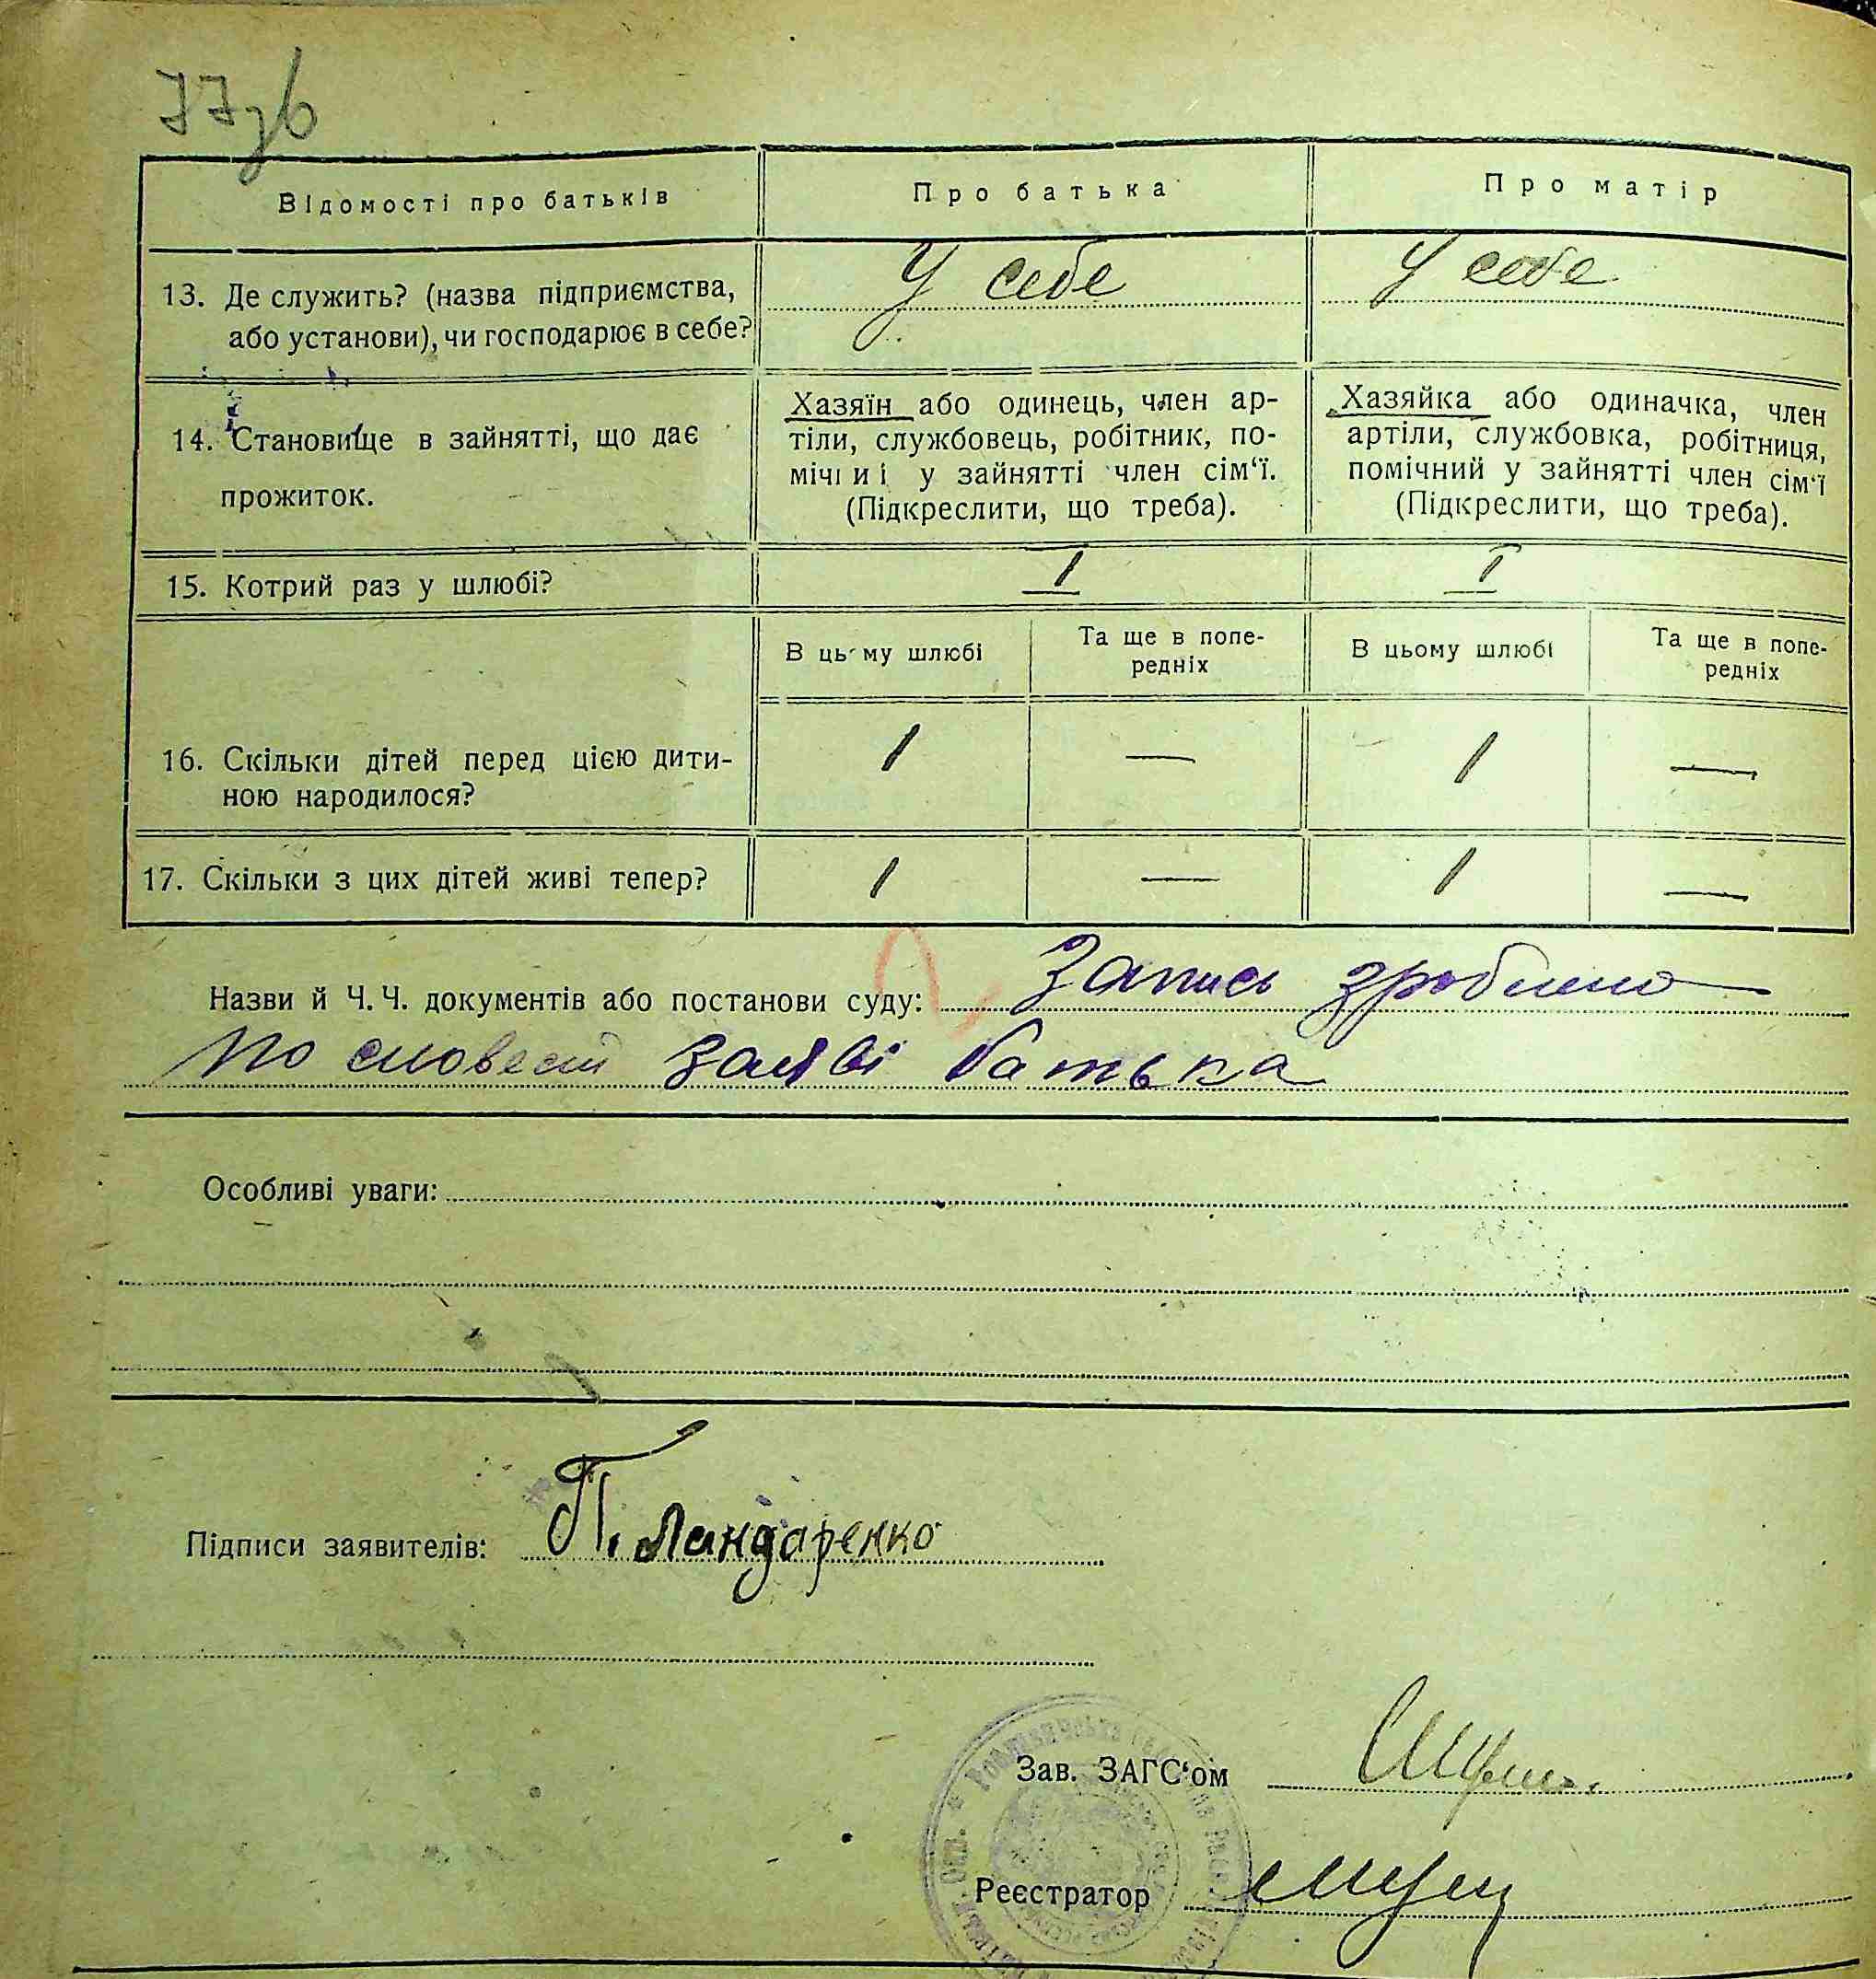 77зв
Відомості про батьків
Про батька
Про матір
13. Де служить? (назва підприємства,
або установи), чи господарює в себе?
У себе
У себе
14. Становище в зайнятті, що дає
прожиток.
Хазяїн або одинець, член ар-
тіли, службовець, робітник, по-
мічний у зайнятті член сім'ї.
(Підкреслити, що треба).
Хазяйка або одиначка, член
артіли, службовка, робітниця,
помічний у зайнятті член сім'ї
(Підкреслити, що треба).
15. Котрий раз у шлюбі?
I
I
В цьому шлюбі
Та ще в попе-
редніх
В цьому шлюбі
Та ще в попе-
редніх
16. Скільки дітей перед цією дити-
ною народилося?
1 — 1 —
17. Скільки з цих дітей живі тепер?
1 — 1 —
Назви й Ч.Ч. документів або постанови суду: Запись зроблено
по словесній заяві батька
Особливі уваги:
Підписи заявителів:
Зав. ЗАГС'ом
Реєстратор